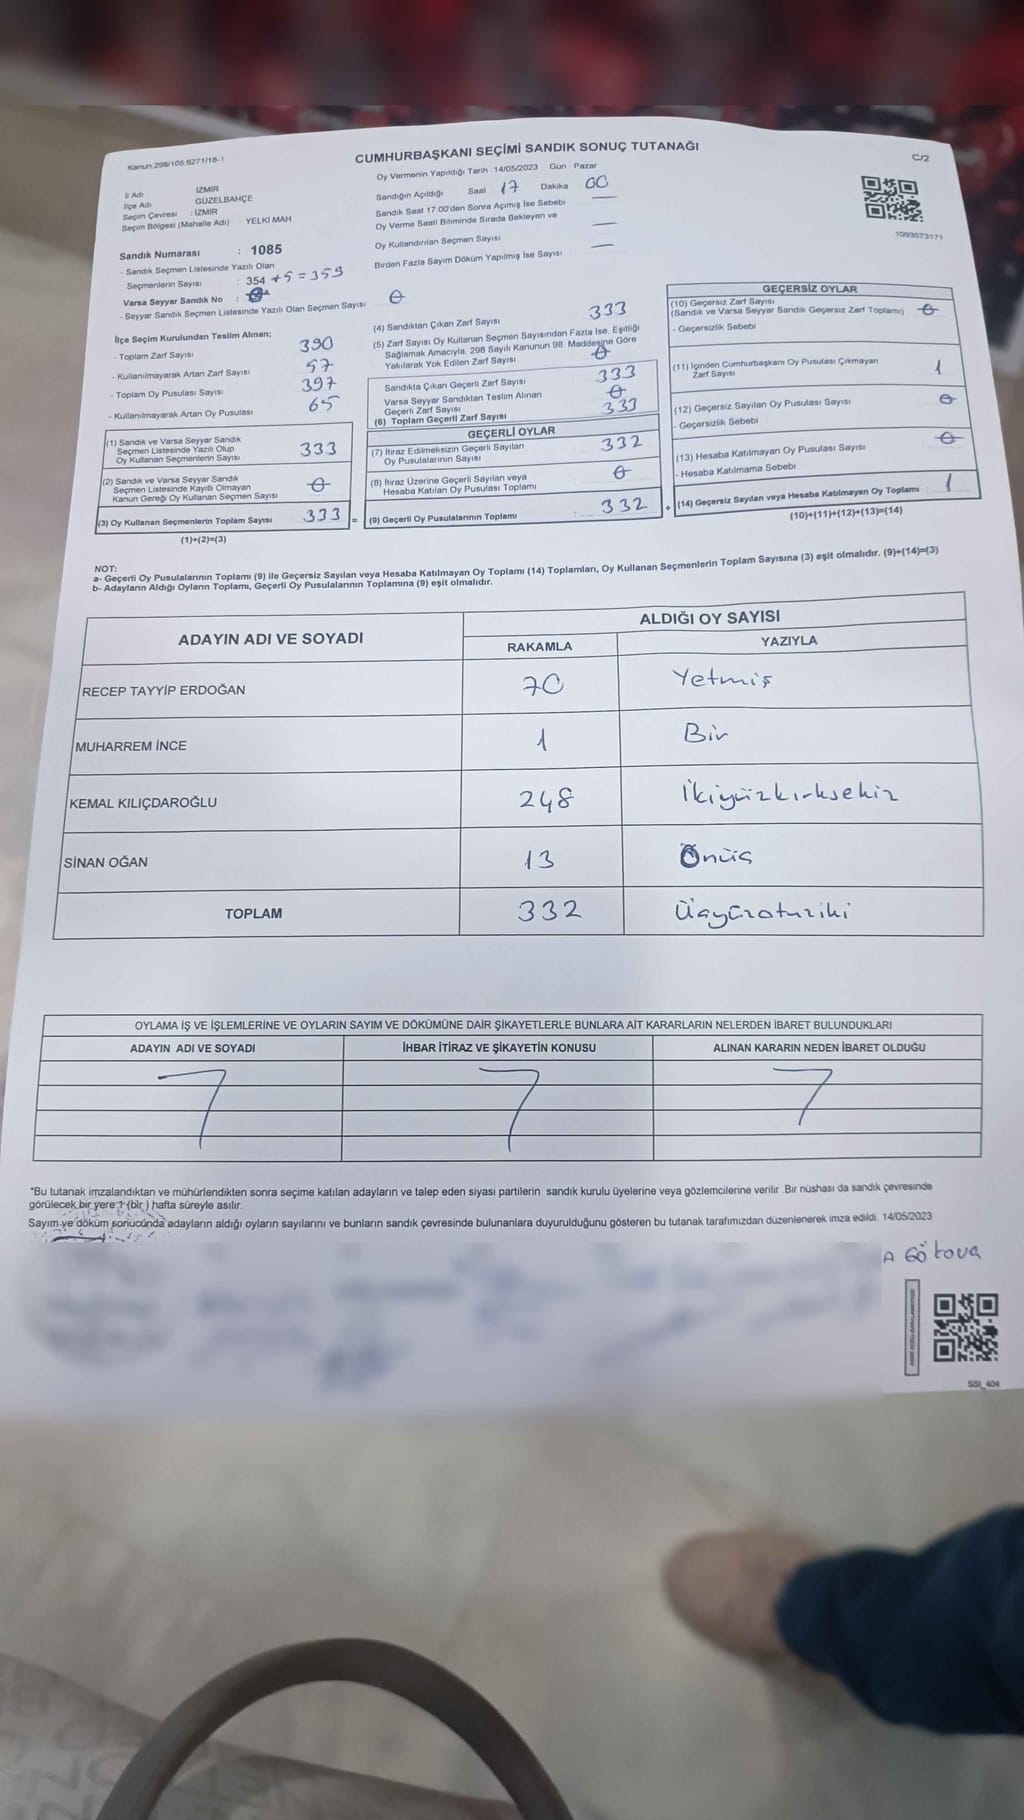 Kanun:298/105,6271/18-1
CUMHURBAŞKANI SEÇİMİ SANDIK SONUÇ TUTANAĞI
C/2
Oy Vermenin Yapıldığı Tarih 14/05/2023 Gün : Pazar
İl Adı İZMİR
İlçe Adı GÜZELBAHÇE
Seçim Çevresi : İZMİR
Seçim Bölgesi (Mahalle Adı) YELKİ MAH
Sandığın Açıldığı Saat 17 Dakika 00
Sandık Saat 17:00'den Sonra Açımış İse Sebebi —
Oy Verme Saati Bitiminde Sırada Bekleyen ve
Oy Kullandırılan Seçmen Sayısı —
Birden Fazla Sayım Döküm Yapılmış İse Sayısı —
1093573171
Sandık Numarası : 1085
- Sandık Seçmen Listesinde Yazılı Olan
Seçmenlerin Sayısı : 354 +5 = 359
Varsa Seyyar Sandık No :
- Seyyar Sandık Seçmen Listesinde Yazılı Olan Seçmen Sayısı 0
İlçe Seçim Kurulundan Teslim Alınan;
- Toplam Zarf Sayısı 390
- Kullanılmayarak Artan Zarf Sayısı 57
- Toplam Oy Pusulası Sayısı 397
- Kullanılmayarak Artan Oy Pusulası 65
(1) Sandık ve Varsa Seyyar Sandık
Seçmen Listesinde Yazılı Olup
Oy Kullanan Seçmenlerin Sayısı 333
(2) Sandık ve Varsa Seyyar Sandık
Seçmen Listesinde Kayıtlı Olmayan
Kanun Gereği Oy Kullanan Seçmen Sayısı 0
(3) Oy Kullanan Seçmenlerin Toplam Sayısı : 333 =
(1)+(2)=(3)
(4) Sandıktan Çıkan Zarf Sayısı 333
(5) Zarf Sayısı Oy Kullanan Seçmen Sayısından Fazla İse, Eşitliği
Sağlamak Amacıyla, 298 Sayılı Kanunun 98. Maddesine Göre
Yakılarak Yok Edilen Zarf Sayısı 0
Sandıkta Çıkan Geçerli Zarf Sayısı 333
Varsa Seyyar Sandıktan Teslim Alınan
Geçerli Zarf Sayısı 0
(6) Toplam Geçerli Zarf Sayısı 333
GEÇERLİ OYLAR
(7) İtiraz Edilmeksizin Geçerli Sayılan
Oy Pusulalarının Sayısı 332
(8) İtiraz Üzerine Geçerli Sayılan veya
Hesaba Katılan Oy Pusulası Toplamı 0
(9) Geçerli Oy Pusulalarının Toplamı : 332 +
GEÇERSİZ OYLAR
(10) Geçersiz Zarf Sayısı
(Sandık ve Varsa Seyyar Sandık Geçersiz Zarf Toplamı) 0
- Geçersizlik Sebebi
(11) İçinden Cumhurbaşkanı Oy Pusulası Çıkmayan
Zarf Sayısı 1
(12) Geçersiz Sayılan Oy Pusulası Sayısı 0
- Geçersizlik Sebebi
(13) Hesaba Katılmayan Oy Pusulası Sayısı 0
- Hesaba Katılmama Sebebi
(14) Geçersiz Sayılan veya Hesaba Katılmayan Oy Toplamı : 1
(10)+(11)+(12)+(13)=(14)
NOT:
a- Geçerli Oy Pusulalarının Toplamı (9) ile Geçersiz Sayılan veya Hesaba Katılmayan Oy Toplamı (14) Toplamları, Oy Kullanan Seçmenlerin Toplam Sayısına (3) eşit olmalıdır. (9)+(14)=(3)
b- Adayların Aldığı Oyların Toplamı, Geçerli Oy Pusulalarının Toplamına (9) eşit olmalıdır.
ADAYIN ADI VE SOYADI
ALDIĞI OY SAYISI
RAKAMLA YAZIYLA
RECEP TAYYİP ERDOĞAN 70 Yetmiş
MUHARREM İNCE 1 Bir
KEMAL KILIÇDAROĞLU 248 İkiyüzkırksekiz
SİNAN OĞAN 13 Onüç
TOPLAM 332 Üçyüzotuziki
OYLAMA İŞ VE İŞLEMLERİNE VE OYLARIN SAYIM VE DÖKÜMÜNE DAİR ŞİKAYETLERLE BUNLARA AİT KARARLARIN NELERDEN İBARET BULUNDUKLARI
ADAYIN ADI VE SOYADI İHBAR İTİRAZ VE ŞİKAYETİN KONUSU ALINAN KARARIN NEDEN İBARET OLDUĞU
*Bu tutanak imzalandıktan ve mühürlendikten sonra seçime katılan adayların ve talep eden siyasi partilerin sandık kurulu üyelerine veya gözlemcilerine verilir. Bir nüshası da sandık çevresinde
görülecek bir yere 1 (bir ) hafta süreyle asılır.
Sayım ve döküm sonucunda adayların aldığı oyların sayılarını ve bunların sandık çevresinde bulunanlara duyurulduğunu gösteren bu tutanak tarafımızdan düzenlenerek imza edildi. 14/05/2023
A Gökova
SSI_404